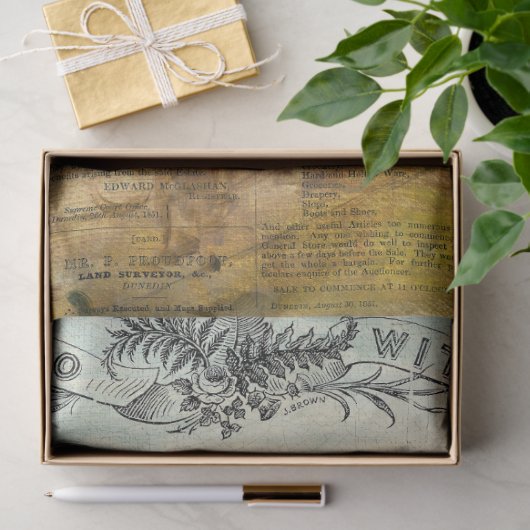 ments arising from the said Estate.
EDWARD McGLASHAN,
Registrar.
Supreme Court Office,
Dunedin, 26th August, 1851.
[CARD.
MR. P. PROUDFOOT,
LAND SURVEYOR, &c.,
DUNEDIN
Always Executed and Maps Supplied.
Hard and Hollow Ware,
Groceries,
Drapery,
Slops,
Boots and Shoes,
And other useful Articles too numerous
mention. Any one wishing to commence
General Store would do well to inspect
above a few days before the Sale. They wo
get the whole a bargain. For further p
ticulars enquire of the Auctioneer.
SALE TO COMMENCE AT 11 O'CLOC
Dunedin, August 30, 1851.
O WIT
J. BROWN